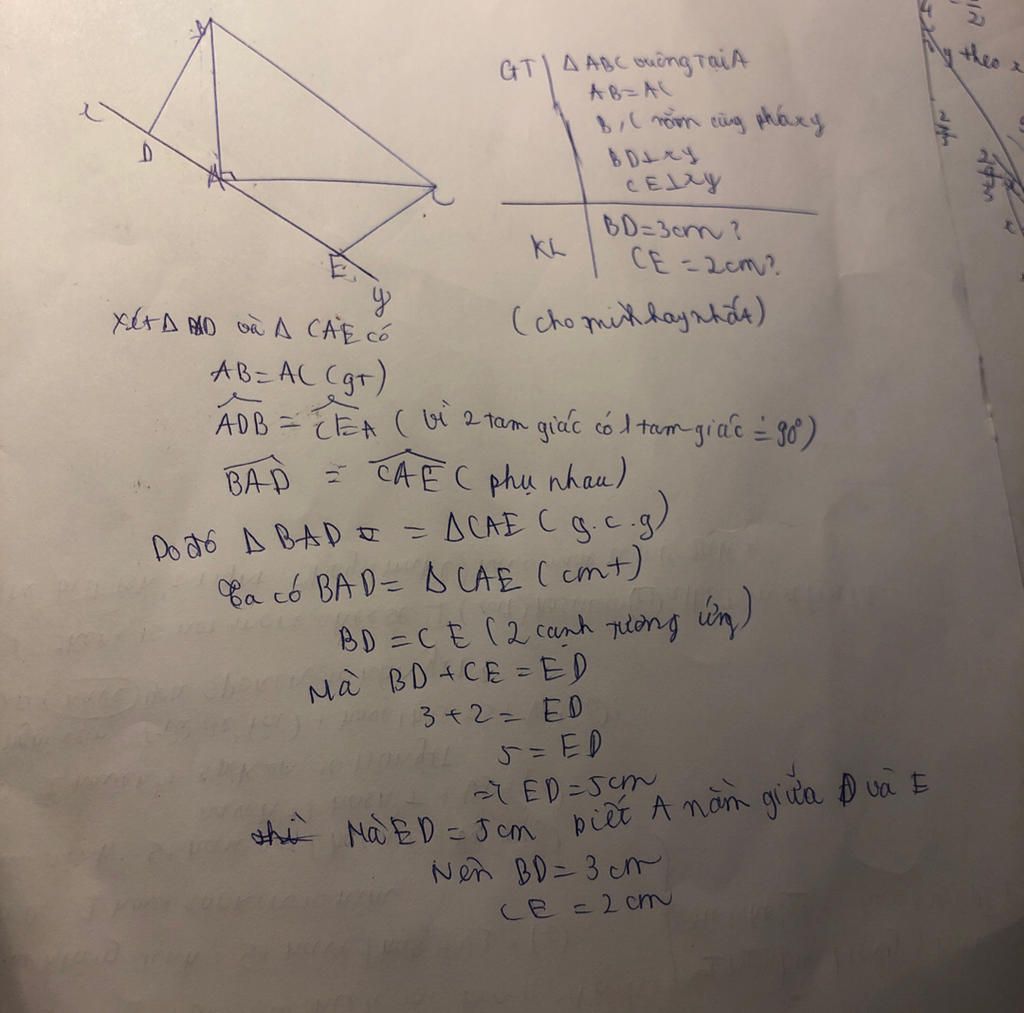 B
x
D
A
C
E
y
GT
Δ ABC vuông tại A
AB = AC
B, C nằm cùng phía xy
BD ⊥ xy
CE ⊥ xy
KL
BD = 3cm ?
CE = 2cm ?
(cho mình hay nhất)
Xét Δ BAD và Δ CAE có
AB = AC (gt)
ADB = CEA (vì 2 tam giác có 1 tam giác = 90°)
BAD = CAE (phụ nhau)
Do đó Δ BAD = Δ CAE (g.c.g)
Ta có BAD = Δ CAE (cmt)
BD = CE (2 cạnh tương ứng)
Mà BD + CE = ED
3 + 2 = ED
5 = ED
=> ED = 5cm
Mà ED = 5cm biết A nằm giữa D và E
Nên BD = 3cm
CE = 2cm
y theo x